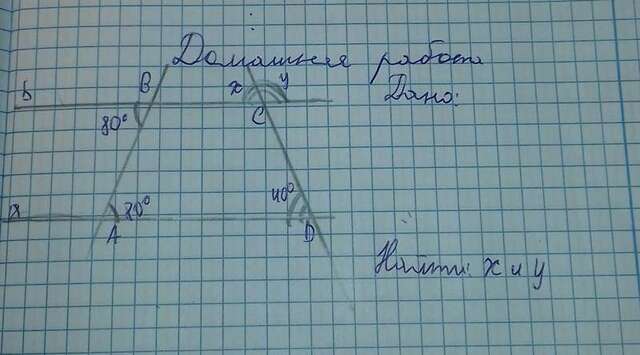 Домашняя работа
Дано:
b B x y
80° C
40°
a 80° A D
Найти: x и y